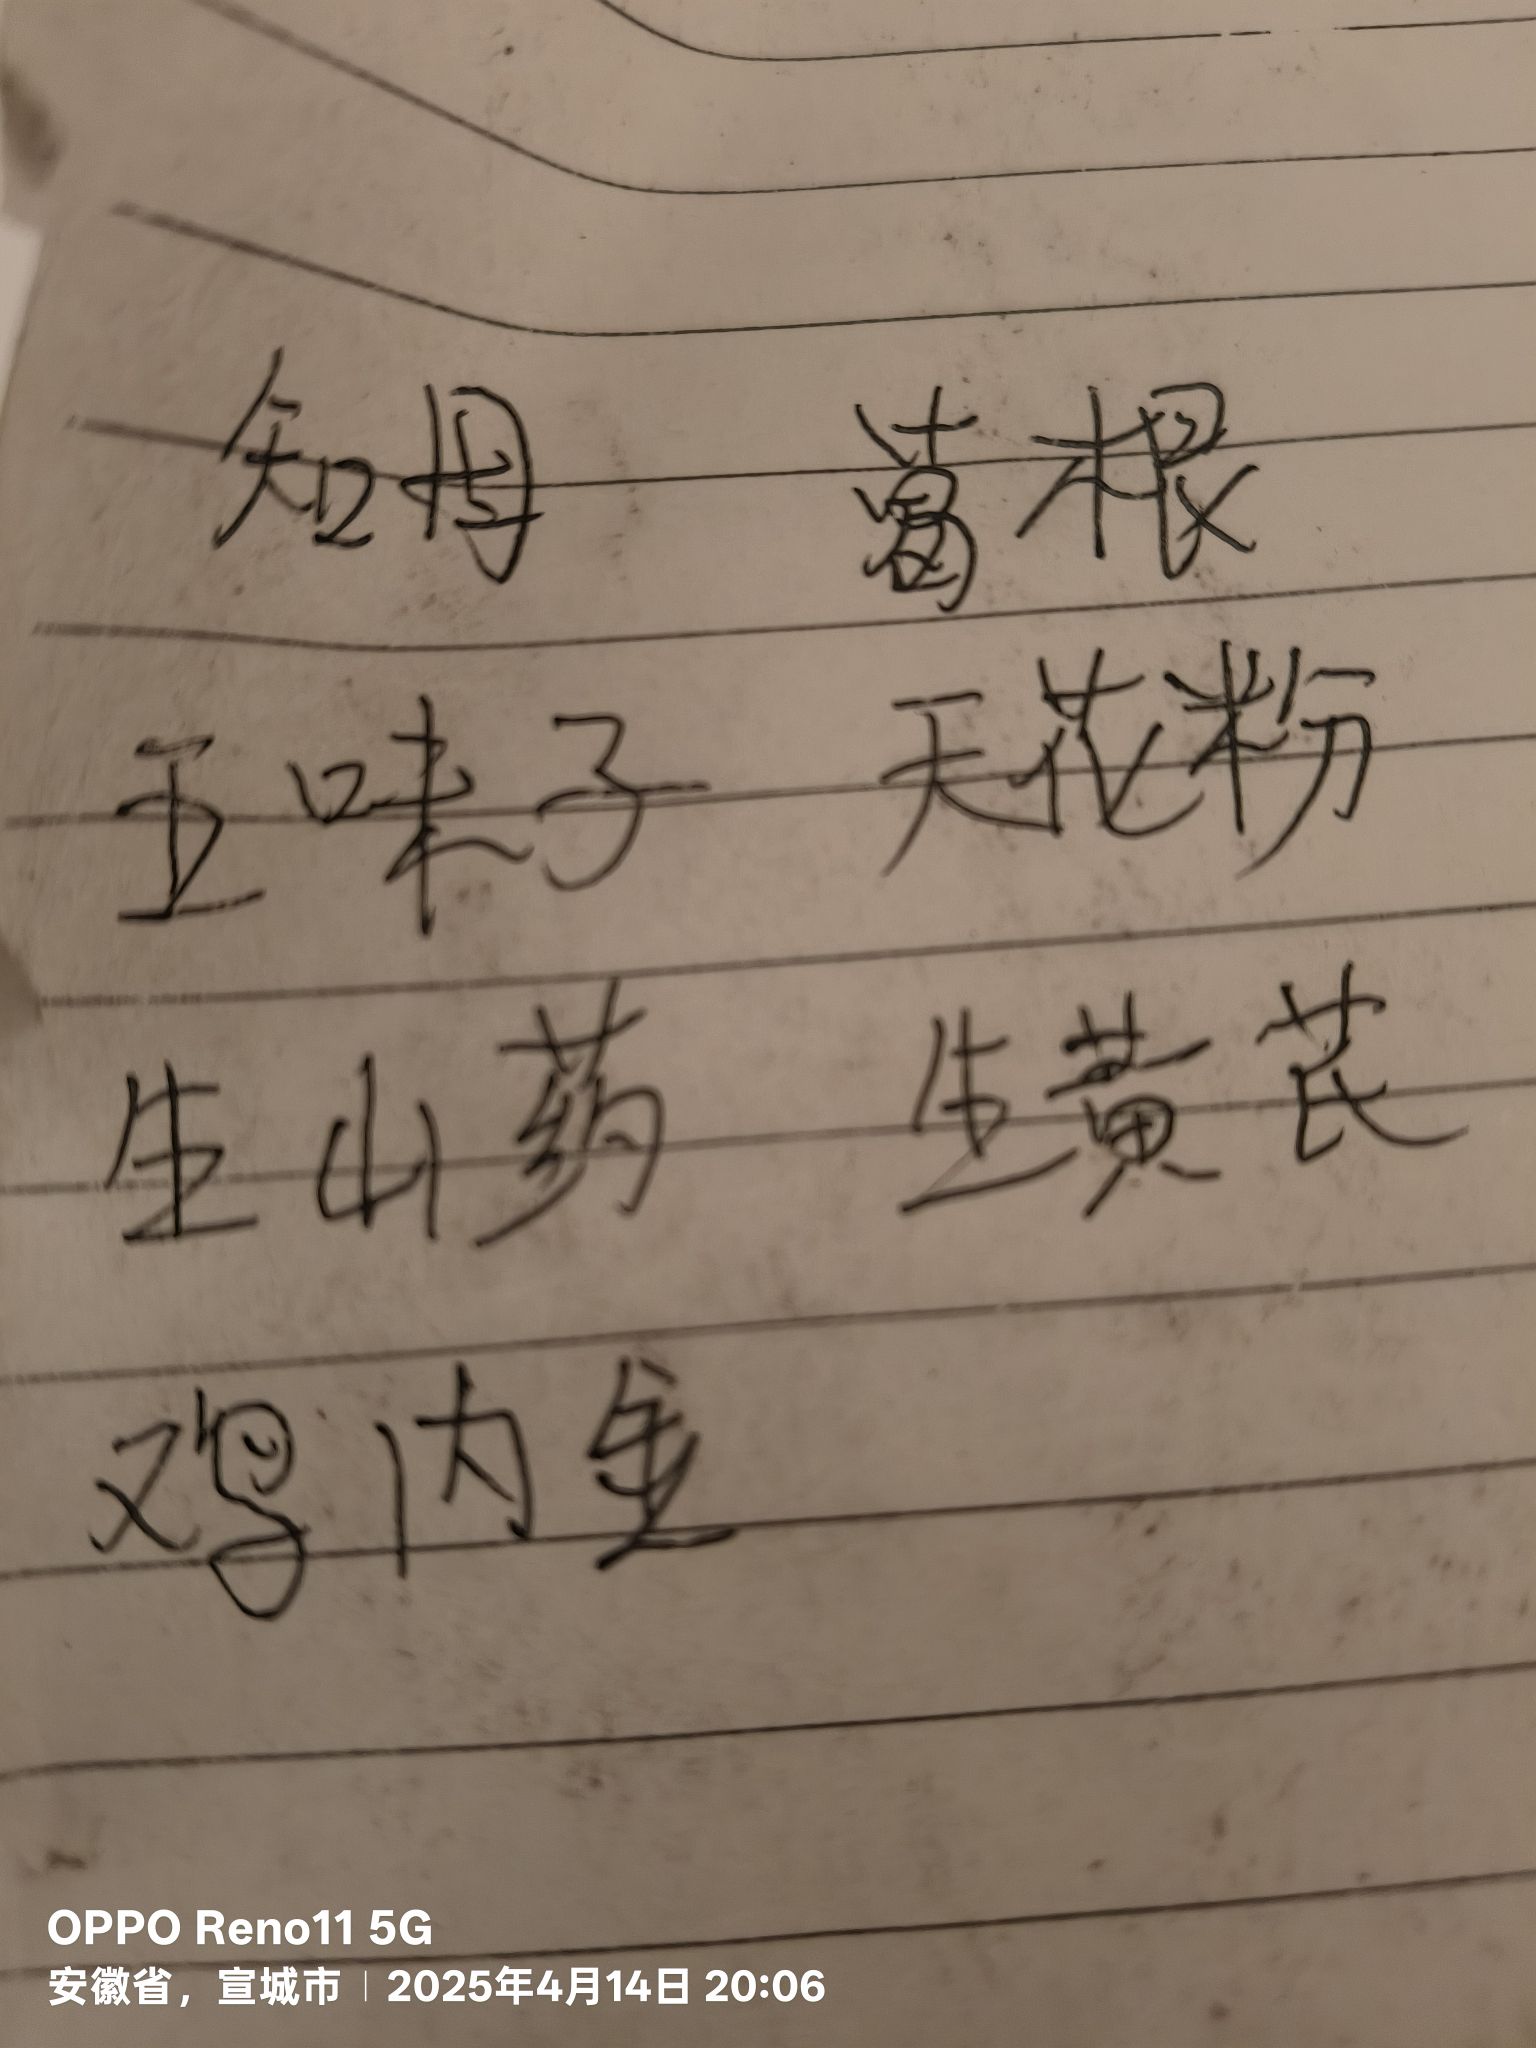 知母 葛根
五味子 天花粉
生山药 生黄芪
鸡内金
OPPO Reno11 5G
安徽省，宣城市 | 2025年4月14日 20:06